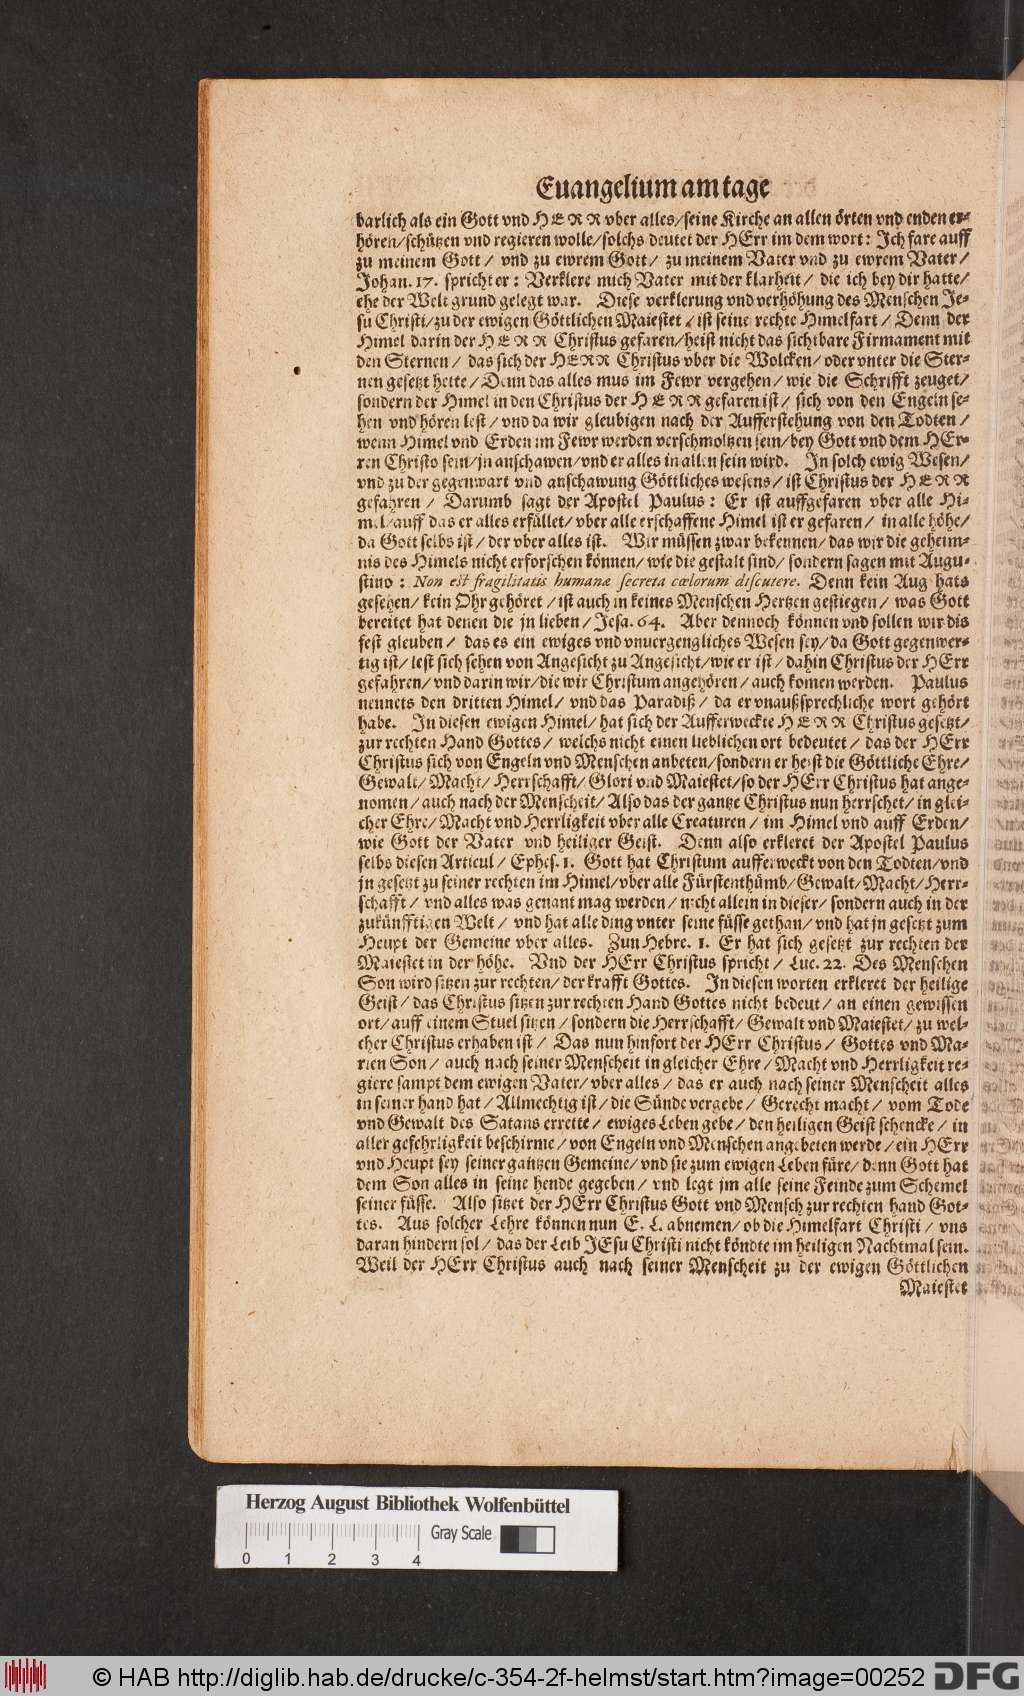 Euangelium am tage
barlich als ein Gott vnd HERR vber alles/ seine Kirche an allen örten vnd enden er-
hören/ schützen vnd regieren wolle/ solchs deutet der HErr im dem wort: Ich fare auff
zu meinem Gott/ vnd zu ewrem Gott/ zu meinem Vater vnd zu ewrem Vater/
Johan. 17. spricht er: Verklere mich Vater mit der klarheit/ die ich bey dir hatte/
ehe der Welt grund gelegt war. Diese verklerung vnd verhöhung des Menschen Je-
su Christi/ zu der ewigen Göttlichen Maiestet/ ist seine rechte Himelfart/ Denn der
Himel darin der HERR Christus gefaren/ heist nicht das sichtbare Firmament mit
den Sternen/ das sich der HERR Christus vber die Wolcken/ oder vnter die Ster-
nen gesetzt hette/ Denn das alles mus im Fewr vergehen/ wie die Schrifft zeuget/
sondern der Himel in den Christus der HERR gefaren ist/ sich von den Engeln se-
hen vnd hören lest/ vnd da wir gleubigen nach der Aufferstehung von den Todten/
wenn Himel vnd Erden im Fewr werden verschmoltzen sein/ bey Gott vnd dem HEr-
ren Christo sein/ jn anschawen/ vnd er alles in allen sein wird. In solch ewig Wesen/
vnd zu der gegenwart vnd anschawung Göttliches wesens/ ist Christus der HERR
gefahren/ Darumb sagt der Apostel Paulus: Er ist auffgefaren vber alle Hi-
mel/ auff das er alles erfüllet/ vber alle erschaffene Himel ist er gefaren/ in alle höhe/
da Gott selbs ist/ der vber alles ist. Wir müssen zwar bekennen/ das wir die geheim-
nis des Himels nicht erforschen können/ wie die gestalt sind/ sondern sagen mit Augu-
stino: Non est fragilitatis humanæ secreta cœlorum discutere. Denn kein Aug hats
gesehen/ kein Ohr gehöret/ ist auch in keines Menschen Hertzen gestiegen/ was Gott
bereitet hat denen die jn lieben/ Jesa. 64. Aber dennoch können vnd sollen wir dis
fest gleuben/ das es ein ewiges vnd vnuergengliches Wesen sey/ da Gott gegenwer-
tig ist/ lest sich sehen von Angesicht zu Angesicht/ wie er ist/ dahin Christus der HErr
gefahren/ vnd darin wir/ die wir Christum angehören/ auch komen werden. Paulus
nennets den dritten Himel/ vnd das Paradiß/ da er vnaußsprechliche wort gehört
habe. In diesen ewigen Himel/ hat sich der Aufferweckte HERR Christus gesetzt/
zur rechten Hand Gottes/ welchs nicht einen lieblichen ort bedeutet/ das der HErr
Christus sich von Engeln vnd Menschen anbeten/ sondern er heist die Göttliche Ehre/
Gewalt/ Macht/ Herrschafft/ Glori vnd Maiestet/ so der HErr Christus hat ange-
nomen/ auch nach der Menscheit/ Also das der gantze Christus nun herrschet/ in glei-
cher Ehre/ Macht vnd Herrligkeit vber alle Creaturen/ im Himel vnd auff Erden/
wie Gott der Vater vnd heiliger Geist. Denn also erkleret der Apostel Paulus
selbs diesen Articul/ Ephes. 1. Gott hat Christum aufferweckt von den Todten/ vnd
jn gesetzt zu seiner rechten im Himel/ vber alle Fürstenthümb/ Gewalt/ Macht/ Herr-
schafft/ vnd alles was genant mag werden/ nicht allein in dieser/ sondern auch in der
zukünfftigen Welt/ vnd hat alle ding vnter seine füsse gethan/ vnd hat jn gesetzt zum
Heupt der Gemeine vber alles. Zun Hebre. 1. Er hat sich gesetzt zur rechten der
Maiestet in der höhe. Vnd der HErr Christus spricht/ Luc. 22. Des Menschen
Son wird sitzen zur rechten/ der krafft Gottes. In diesen worten erkleret der heilige
Geist/ das Christus sitzen zur rechten Hand Gottes nicht bedeut/ an einen gewissen
ort/ auff einem Stuel sitzen/ sondern die Herrschafft/ Gewalt vnd Maiestet/ zu wel-
cher Christus erhaben ist/ Das nun hinfort der HErr Christus/ Gottes vnd Ma-
rien Son/ auch nach seiner Menscheit in gleicher Ehre/ Macht vnd Herrligkeit re-
giere sampt dem ewigen Vater/ vber alles/ das er auch nach seiner Menscheit alles
in seiner hand hat/ Allmechtig ist/ die Sünde vergebe/ Gerecht macht/ vom Tode
vnd Gewalt des Satans errette/ ewiges Leben gebe/ den heiligen Geist schencke/ in
aller gefehrligkeit beschirme/ von Engeln vnd Menschen angebeten werde/ ein HErr
vnd Heupt sey seiner gantzen Gemeine/ vnd sie zum ewigen Leben füre/ denn Gott hat
dem Son alles in seine hende gegeben/ vnd legt jm alle seine Feinde zum Schemel
seiner füsse. Also sitzet der HErr Christus Gott vnd Mensch zur rechten hand Got-
tes. Aus solcher Lehre können nun E. L. abnemen/ ob die Himelfart Christi/ vns
daran hindern sol/ das der Leib JEsu Christi nicht köndte im heiligen Nachtmal sein.
Weil der HErr Christus auch nach seiner Menscheit zu der ewigen Göttlichen
Maiestet
Herzog August Bibliothek Wolfenbüttel
Gray Scale
0 1 2 3 4
© HAB http://diglib.hab.de/drucke/c-354-2f-helmst/start.htm?image=00252 DFG